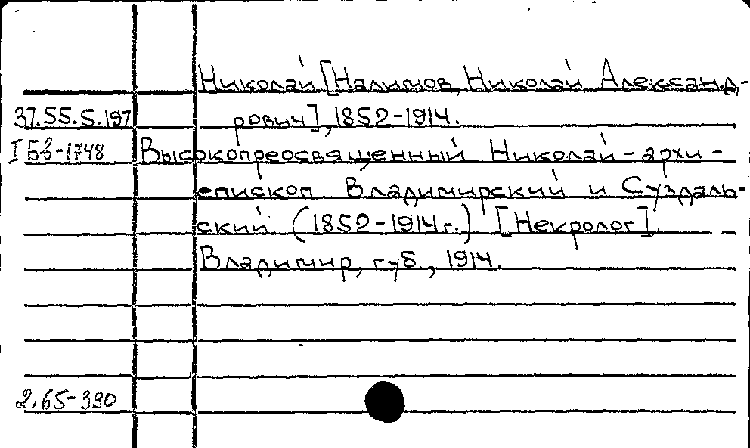 Николай [Налимов, Николай Александ-
37.55.5.197 рович], 1852-1914.
I Бз-1748 Высокопреосвященный Николай - архи-
епископ Владимирский и Суздаль-
ский (1852-1914г.) [Некролог]
Владимир, губ., 1914.
2.65-390